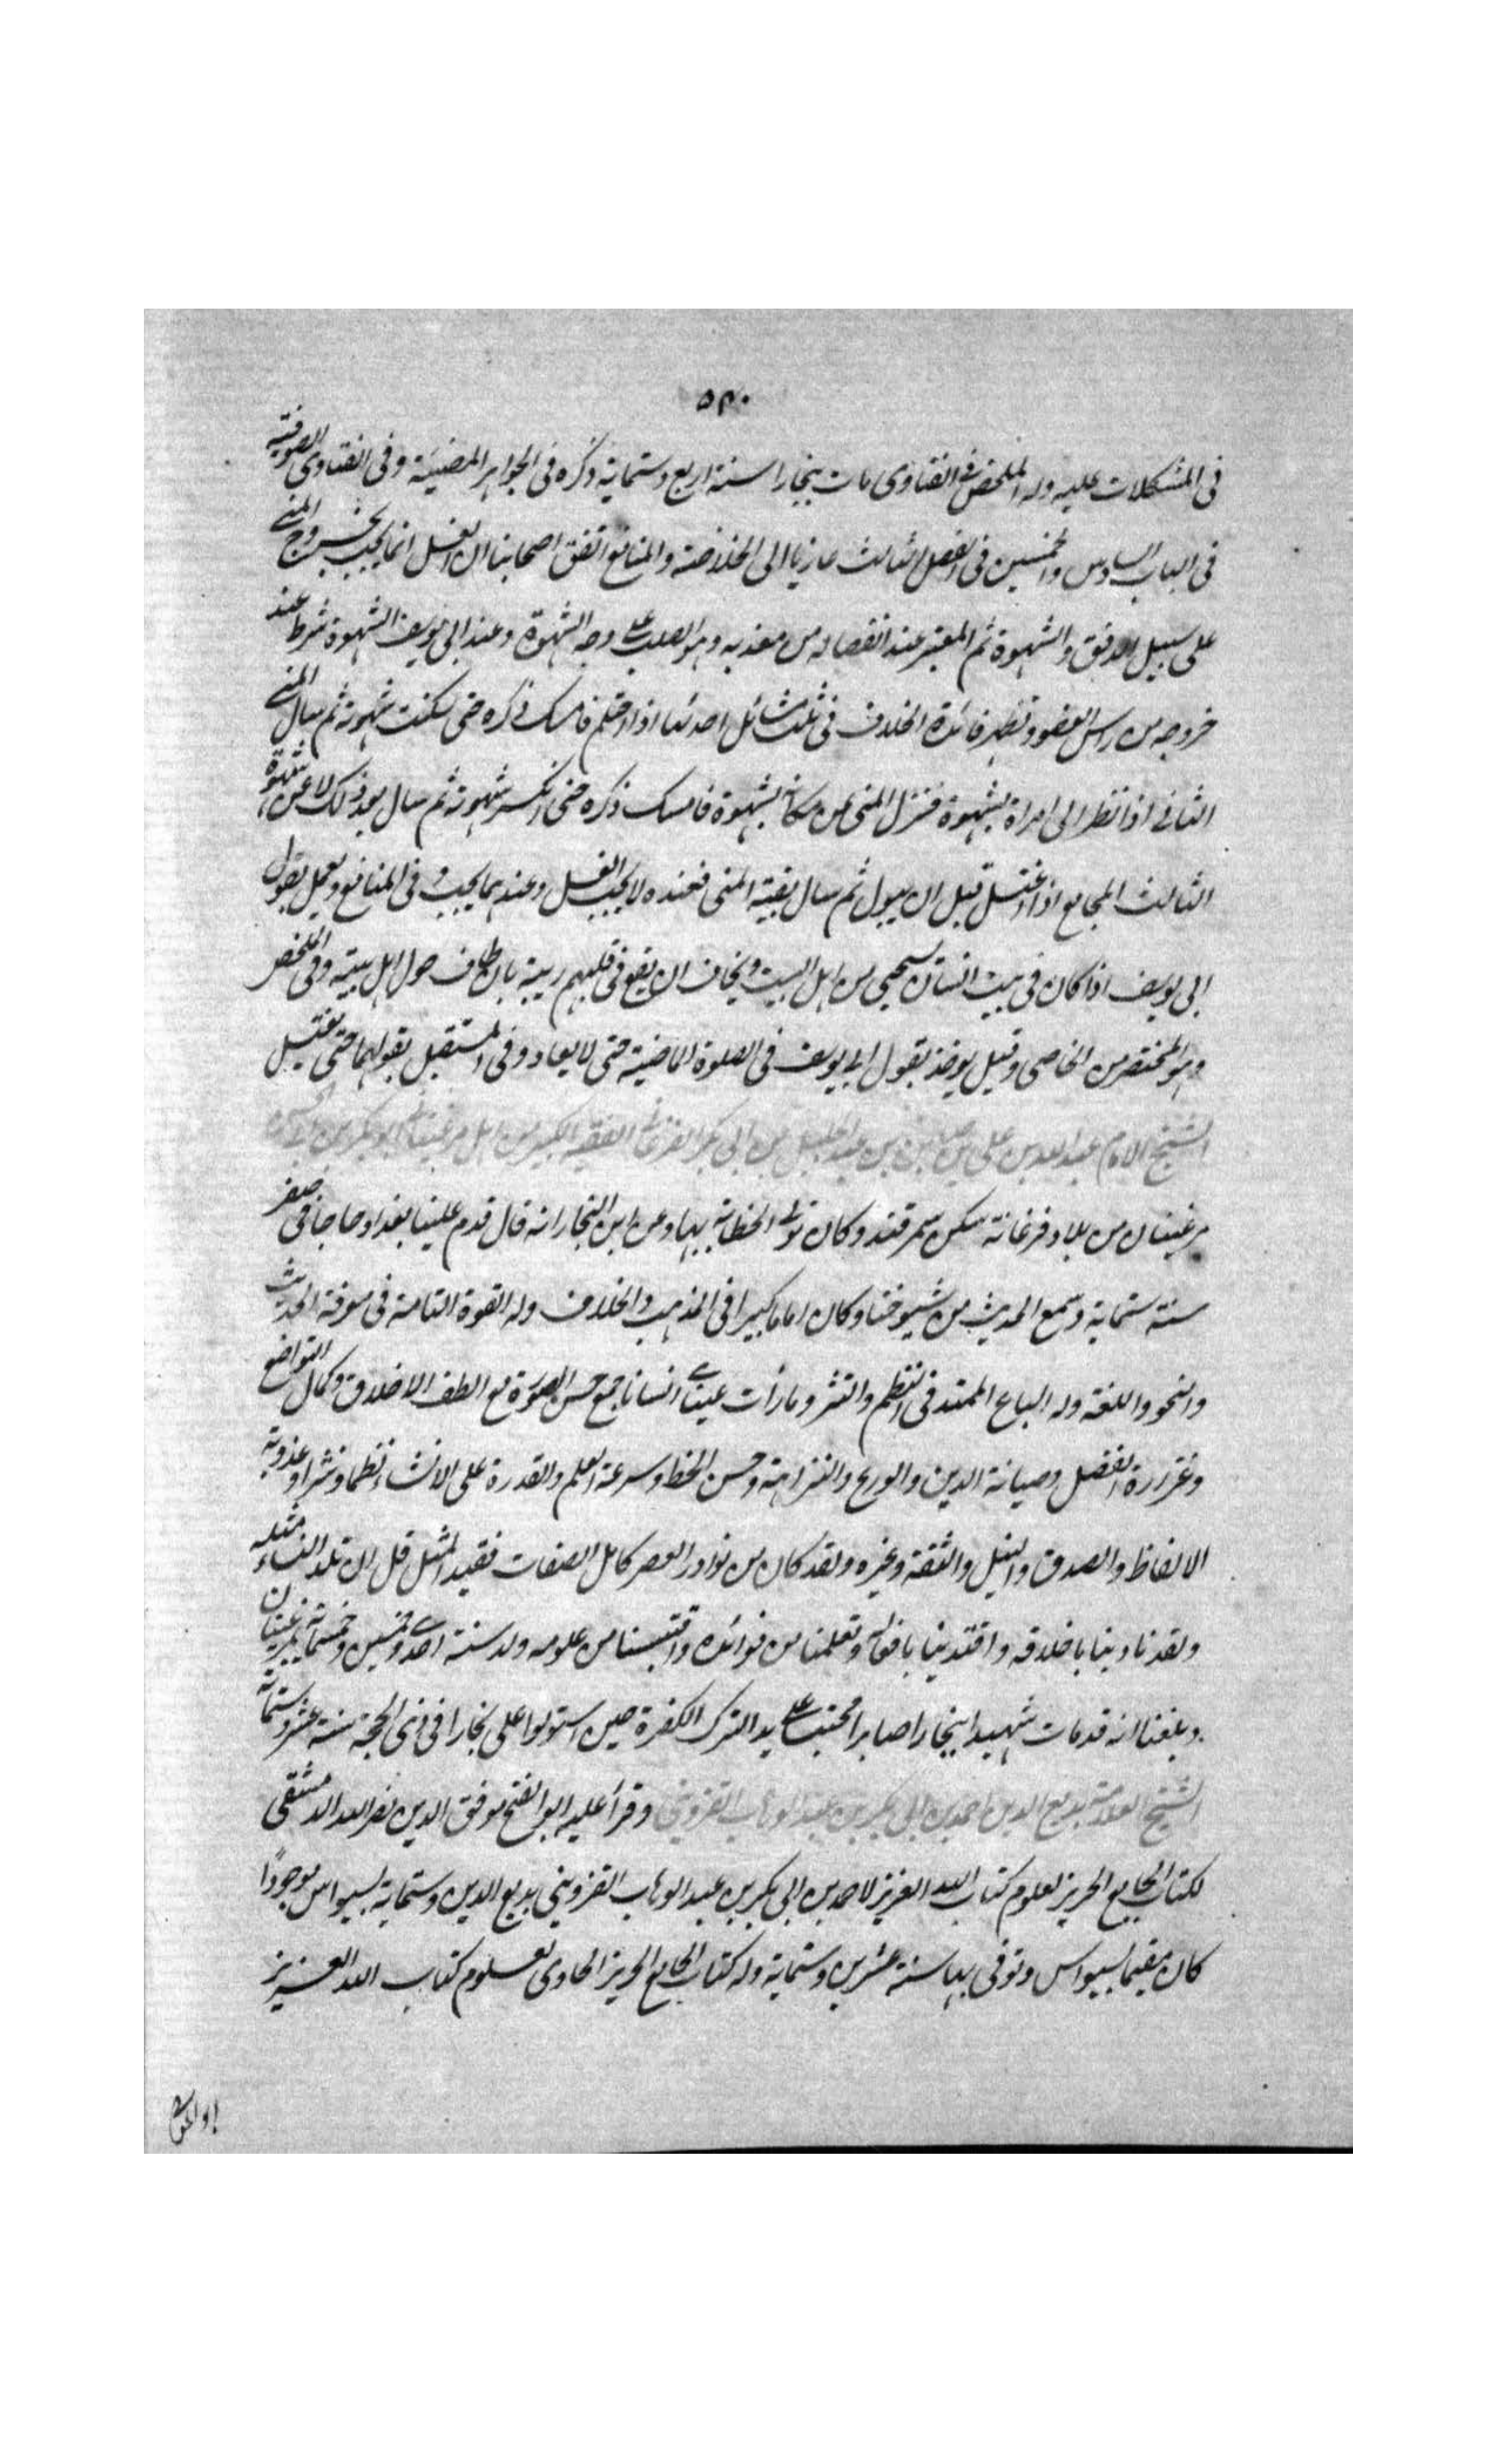 ٥٣٠
فى المشكلات عليه وله الملخص فى الفتاوى مات ببخارا سنة اربع وستماية ذكره فى الجواهر المضيئة وفى الفتاوى الصوفية
فى الباب السادس والخمسين فى الفصل الثالث عازيا الى الخلاصة والمنافع اتفق اصحابنا ان الغسل انما يجب بخروج المنى
على سبيل الدفق والشهوة ثم المعتبر عند انفصاله من معدنه وهو الصلب على وجه الشهوة وعند ابى يوسف الشهوة شرط عند
خروجه من راس العضو وتظهر فائدة الخلاف فى ثلث مسائل احدىها اذا احتلم فامسك ذكره حتى سكنت شهوته ثم سال المنى
الثانى اذا نظر الى امراة بشهوة فنزل المنى عن مكانه بشهوة فامسك ذكره حتى انكسر شهوته ثم سال بعد ذلك لا عن شهوة
الثالث المجامع اذا اغتسل قبل ان يبول ثم سال بقية المنى فعنده لا يجب الغسل وعندهما يجب و فى المنافع ويعمل بقول
ابى يوسف اذا كان فى بيت انسان يستحيى من اهل البيت ويخاف ان يقع فى قلبهم ريبة بان طاف حول اهل بيته وفى الملخص
وهو المختصر من الخاصى وقيل يؤخذ بقول ابى يوسف فى الصلوة الماضية حتى لا يعاد وفى المستقبل بقولهما حتى يغتسل
الشيخ الامام عبد الله بن على بن صاين بن عبد الجليل بن ابى بكر الفرغانى الفقيه الكبير من اهل مرغينان ابو بكر بن ابى الحسن
مرغينان من بلاد فرغانة سكن سمرقند وكان تولى الخطابة بها وعن ابن النجار انه قال قدم علينا بغداد حاجا فى صفر
سنة ستماية وسمع الحديث من شيوخنا وكان اماما كبيرا فى المذهب والخلاف وله القوة التامة فى معرفة الحديث
والنحو واللغة وله الباع الممتد فى النظم والنثر وما رأت عيناى انسانا جمع حسن الصورة مع الطف الاخلاق وكمال التواضع
وغزارة الفضل وصيانة الدين والورع والنزاهة وحسن الخط وسرعة العلم والقدرة على الانشاء نظما ونثرا وعذوبة
الالفاظ والصدق والنبل والثقة وغيره ولقد كان من نوادر العصر كامل الصفات فقيد المثل قل ان تلد النساء مثله
ولقد تادبنا باخلاقه واقتدينا بافعاله وتعلمنا من فوائده واقتبسنا من علومه ولد سنة احدى وخمسين وخمسمائة بمرغينان
وبلغنا انه قد مات شهيدا ببخارا صابرا محتسبا على يد الترك الكفرة حين استولوا على بخارا فى ذى الحجة سنة عشر وستمائة
الشيخ العلامة بديع الدين احمد بن ابى بكر بن عبد الوهاب القزوينى وقرأ عليه ابو الفتح موفق الدين نصر الله الدمشقى
لكتاب الجامع الحريز لعلوم كتاب الله العزيز لاحمد بن ابى بكر بن عبد الوهاب القزوينى بديع الدين وستماية بسيواس موجودًا
كان مقيما بسيواس وتوفى بها سنة عشرين وستماية وله كتاب الجامع الحريز الحاوى لعلوم كتاب الله العزيز